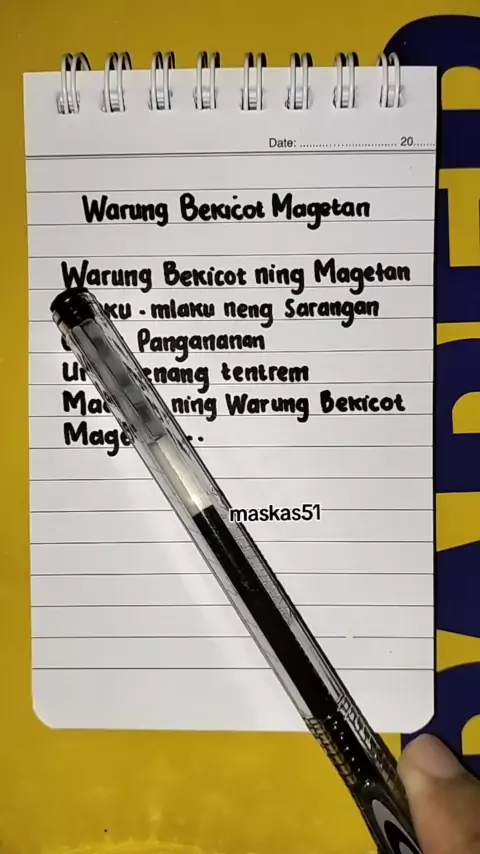 Date: ............................. 20......
Warung Bekicot Magetan
Warung Bekicot ning Magetan
mlaku neng Sarangan
Pangananan
tentrem
ning Warung Bekicot
maskas51